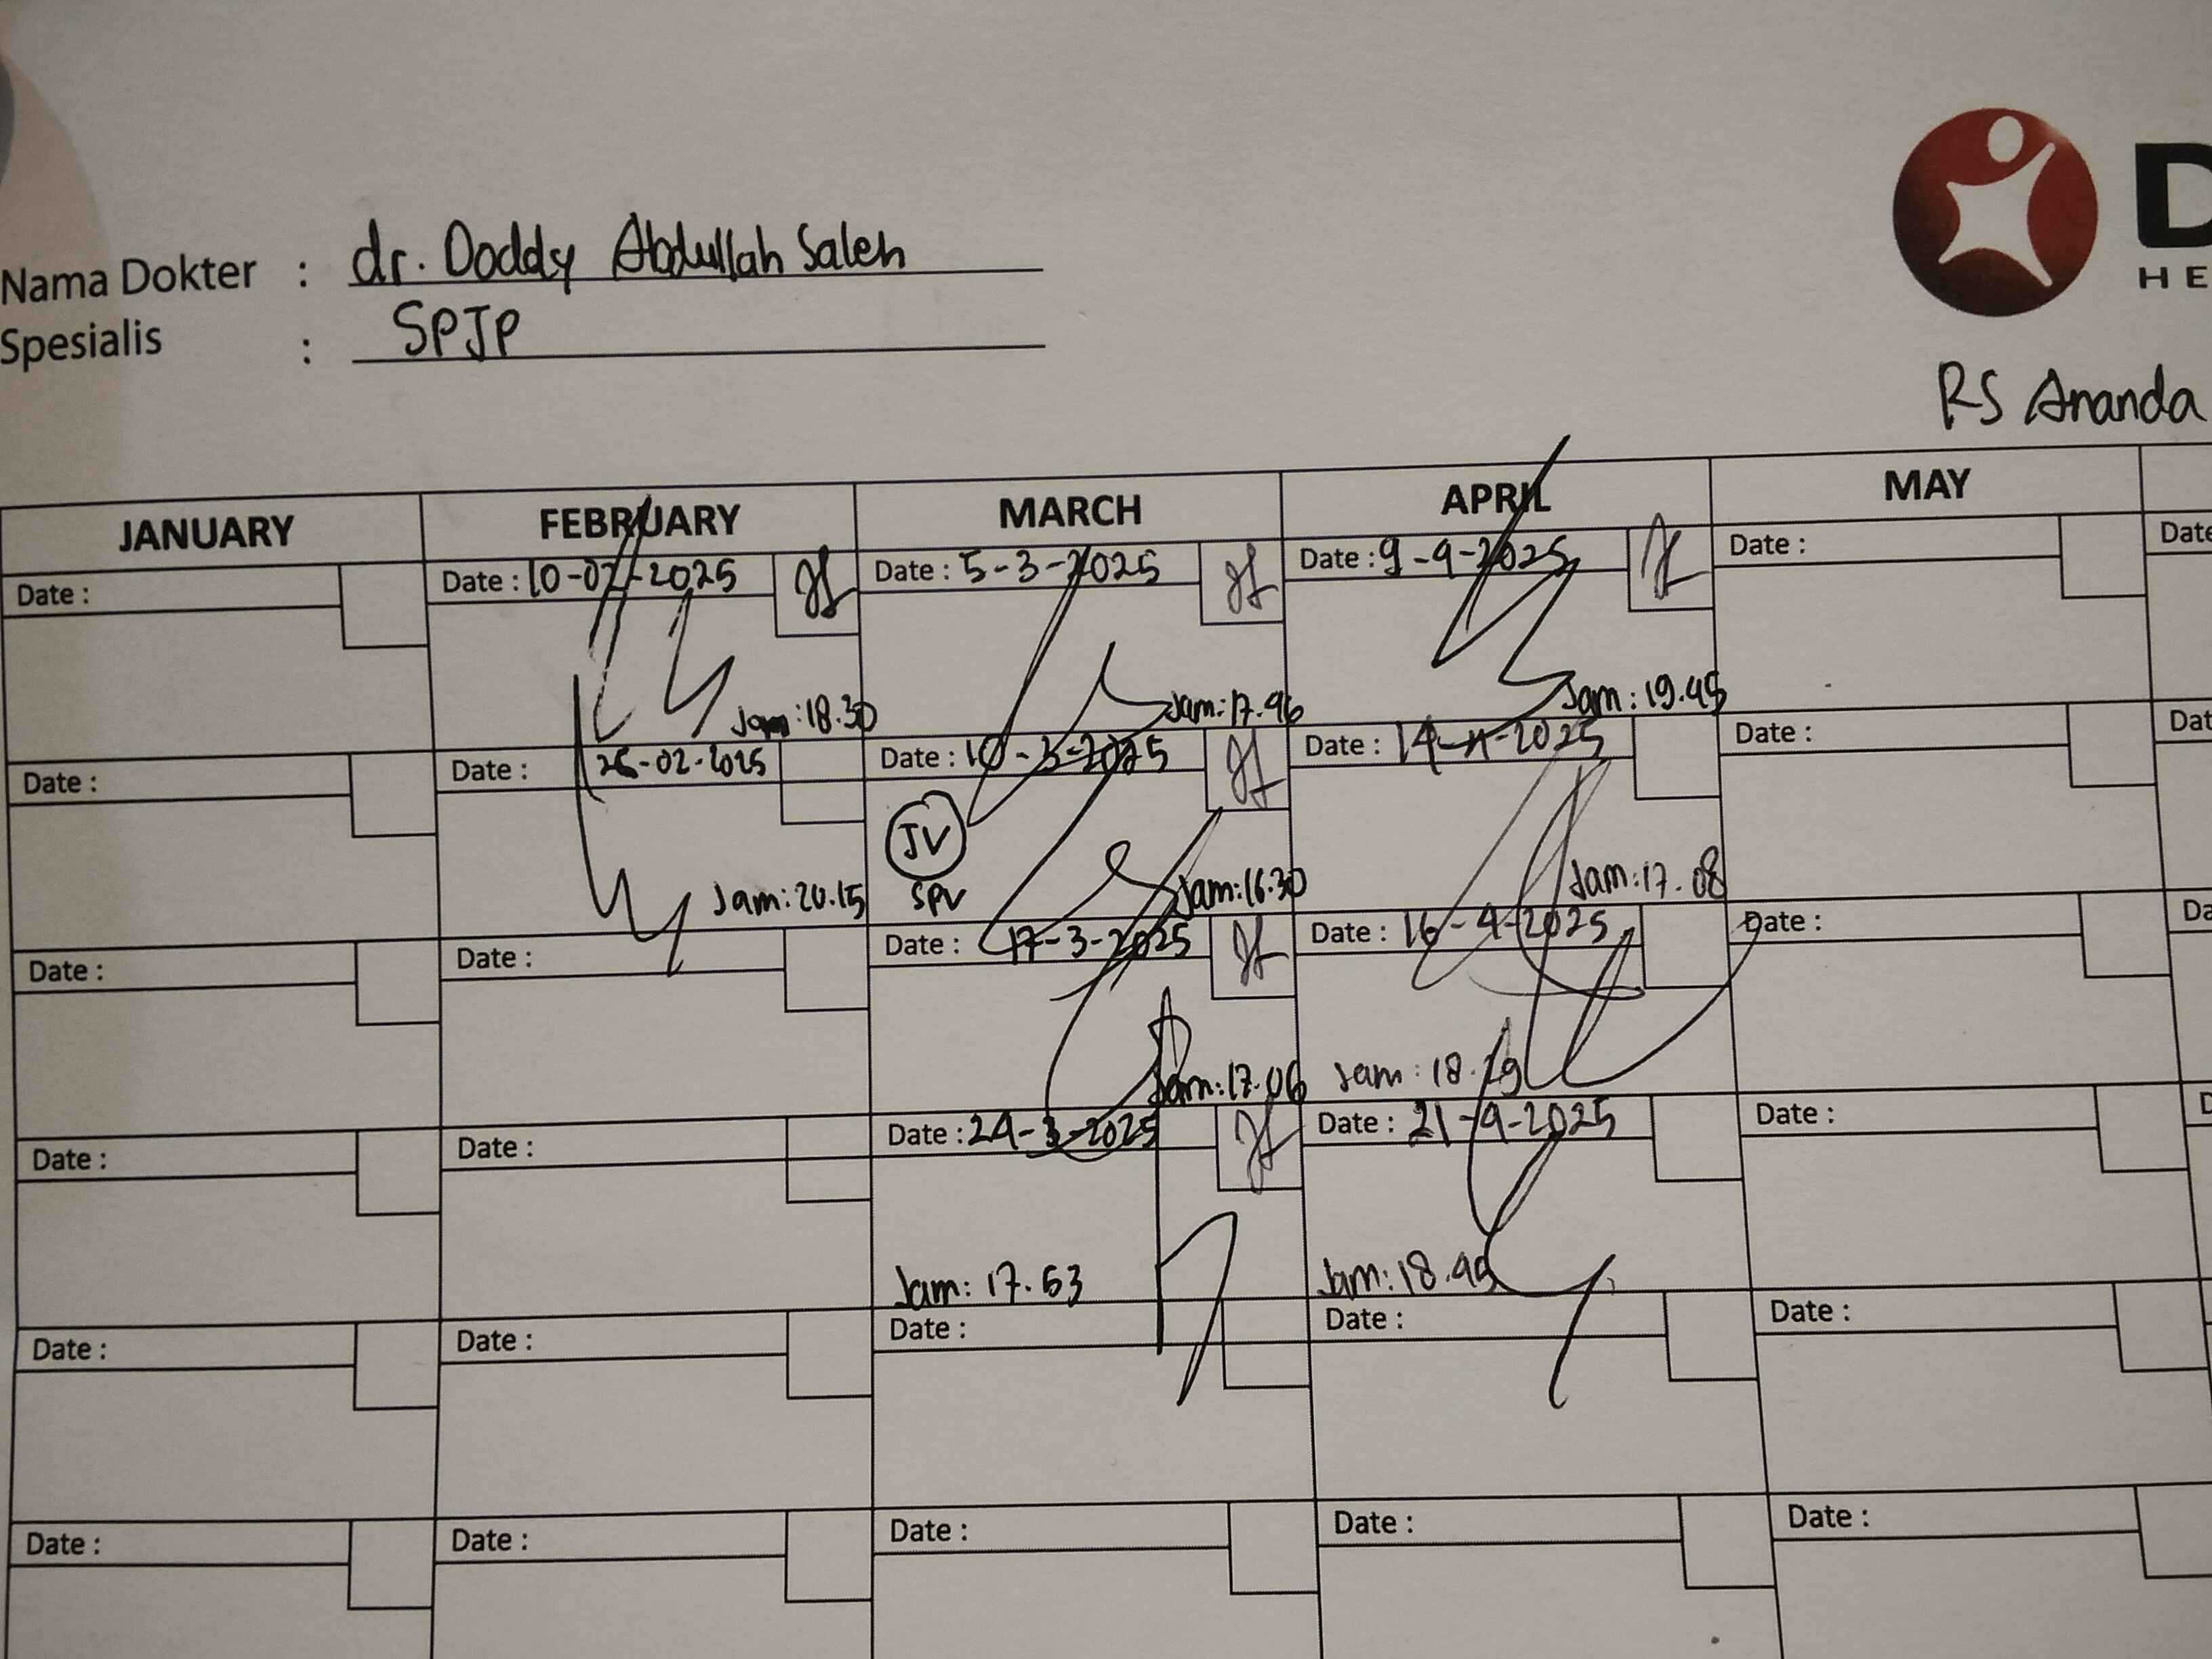 Nama Dokter : dr. Doddy Abdullah Saleh
Spesialis : SPJP
D
HE
RS Ananda
JANUARY FEBRUARY MARCH APRIL MAY
Date : Date : 10-02-2025 Date : 5-3-2025 Date : 9-4-2025 Date : Date
Jam: 18.30 Jam: 17.46 Jam: 19.45
Date : Date : 26-02-2025 Date : 10-3-2025 Date : 14-4-2025 Date : Dat
JV
SPV
Jam: 20.15 Jam: 16.30 Jam: 17.08
Date : Date : Date : 17-3-2025 Date : 16-4-2025 Date : Da
Jam: 17.06 Jam: 18.19
Date : Date : Date : 24-3-2025 Date : 21-4-2025 Date : D
Jam: 17.53 Jam: 18.45
Date : Date : Date : Date : Date :
Date : Date : Date : Date : Date :